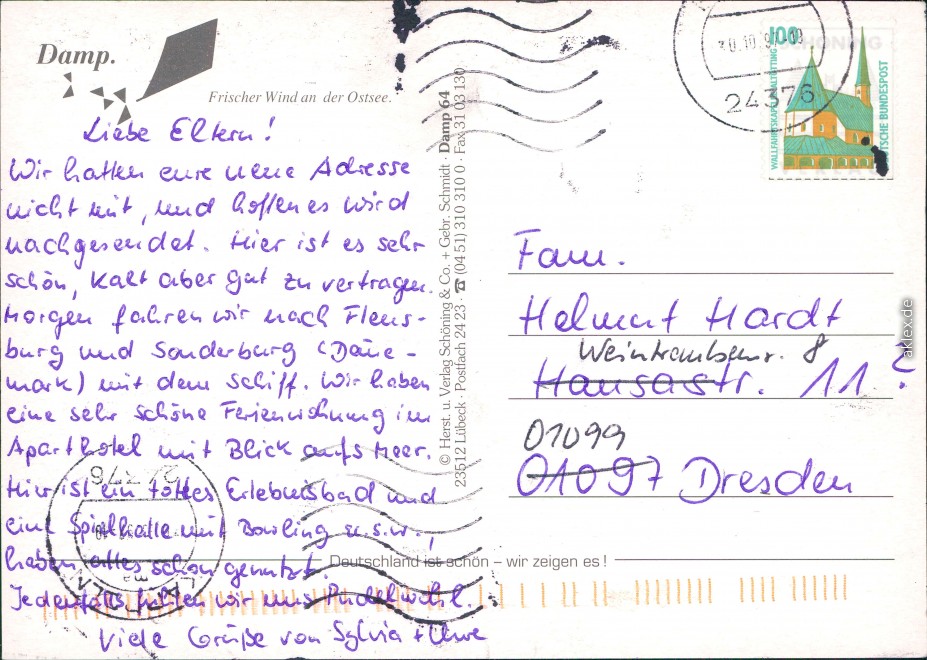 Damp.
Frischer Wind an der Ostsee.
Liebe Eltern!
Wir hatten eure neue Adresse
nicht mit, und hoffen es wird
nachgesendet. Hier ist es sehr
schön, kalt aber gut zu vertragen.
Morgen fahren wir nach Flens-
burg und Sonderburg (Däne-
mark) mit dem Schiff. Wir haben
eine sehr schöne Ferienwohnung im
Aparthotel mit Blick aufs Meer.
Hier ist ein tolles Erlebnisbad und
eine Spielhalle mit Bowling u.s.w.,
haben alles schon genutzt.
Jedenfalls fühlen wir uns Pudelwohl.
Viele Grüße von Sylvia + Uwe
© Herst. u. Verlag Schöning & Co. + Gebr. Schmidt · Damp 64
23512 Lübeck · Postfach 24 23 · ☎ (04 51) 310 310 0 · Fax 31 03 130
Deutschland ist schön – wir zeigen es!
24376
100
DEUTSCHE BUNDESPOST
SCHÖNING
Fam.
Helmut Hardt
Weintraubenstr. 8
Hansastr. 11 ?
01099
01097 Dresden
24376
aklex.de